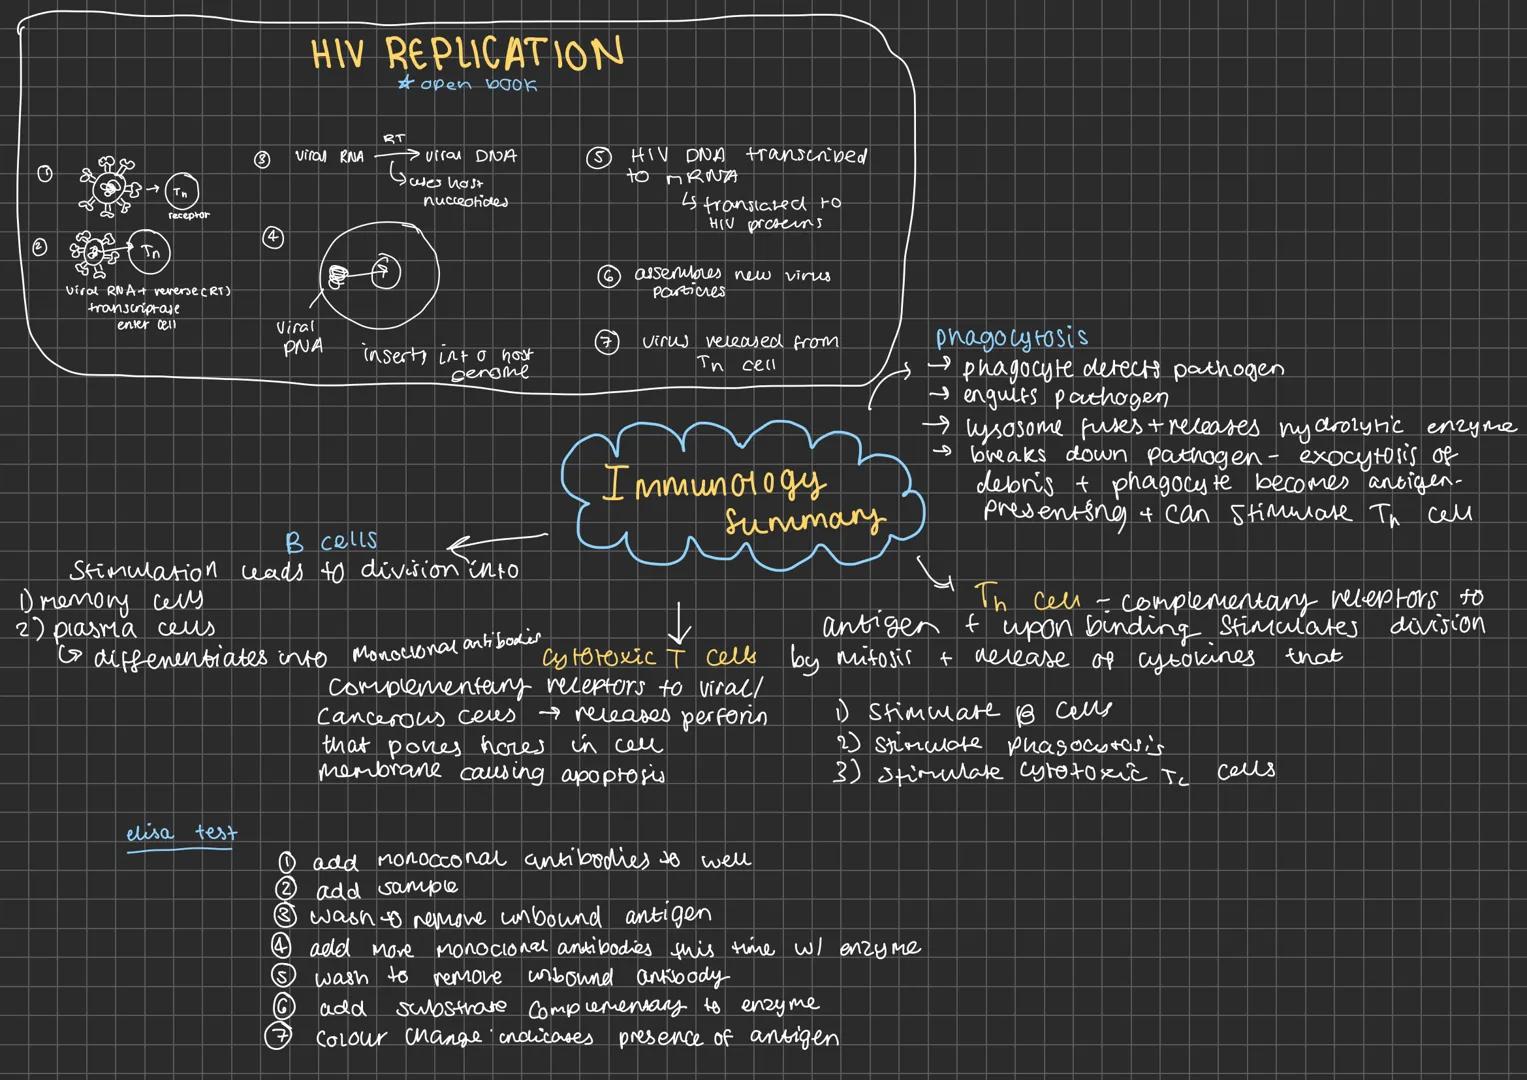 HIV REPLICATION
* open book
①
Tn
receptor
②
Tn
viral RNA + reverse (RT)
transcriptase
enter cell
③ viral RNA RT → viral DNA
↳ uses host
nucleotides
④
viral
DNA
inserts into host
genome
⑤ HIV DNA transcribed
to mRNA
↳ translated to
HIV proteins
⑥ assembles new virus
particles
⑦ virus released from
Tn cell
phagocytosis
→ phagocyte detects pathogen
→ engulfs pathogen
→ lysosome fuses + releases hydrolytic enzyme
→ breaks down pathogen - exocytosis of
debris + phagocyte becomes antigen-
presenting + can stimulate Th cell
Immunology
summary
B cells
Stimulation leads to division into
1) memory cells
2) plasma cells
↳ differentiates into monoclonal antibodies
cytotoxic T cells
complementary receptors to viral/
cancerous cells → releases perforin
that pokes holes in cell
membrane causing apoptosis
Th cell - complementary receptors to
antigen + upon binding stimulates division
by mitosis + release of cytokines that
1) stimulate B cells
2) stimulate phagocytosis
3) stimulate cytotoxic Tc cells
elisa test
① add monoclonal antibodies to well
② add sample
③ wash to remove unbound antigen
④ add more monoclonal antibodies this time w/ enzyme
⑤ wash to remove unbound antibody
⑥ add substrate complementary to enzyme
⑦ colour change indicates presence of antigen